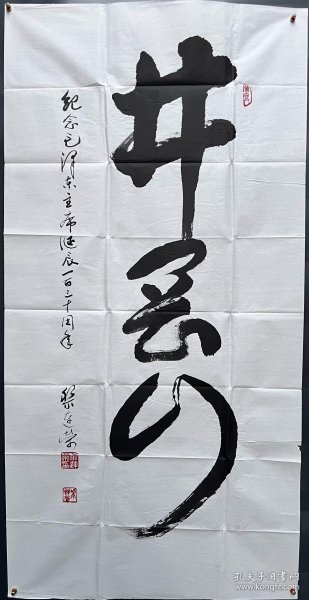 井冈山
纪念毛泽东主席诞辰一百三十周年
孔夫子旧书网